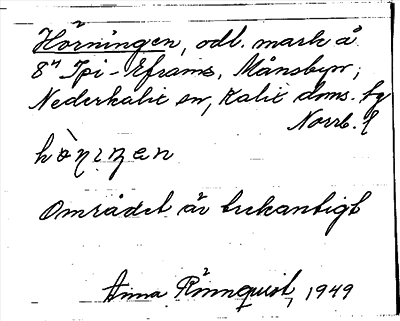 Hörningen, odl. mark å
8ⁿ Ipi-Eframs, Månsbyn,
Nederkalix sn, Kalix doms. fg
Norrb. l
Området är trekantigt
Anna Rönnquist, 1949